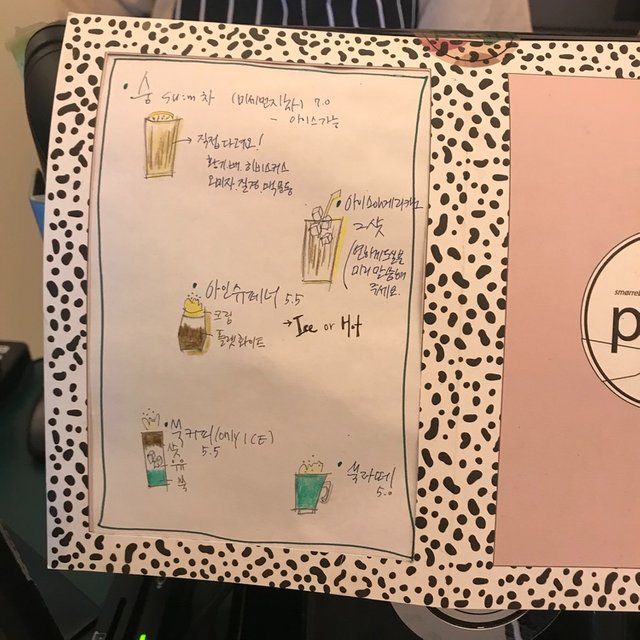 숨 su:m차 (미세먼지차) 7.0
- 아이스가능
→ 직접 다려요!
황기, 배, 히비스커스
오미자, 질경, 맥문동
아이스아메리카노
2샷
(연하게드실분
미리 말씀해
주세요.
아인슈페너 5.5
크림
플랫화이트
→ Ice or Hot
쑥커피(only ICE)
5.5
샷
우유
쑥
쑥라떼!
5.0
smørre
p